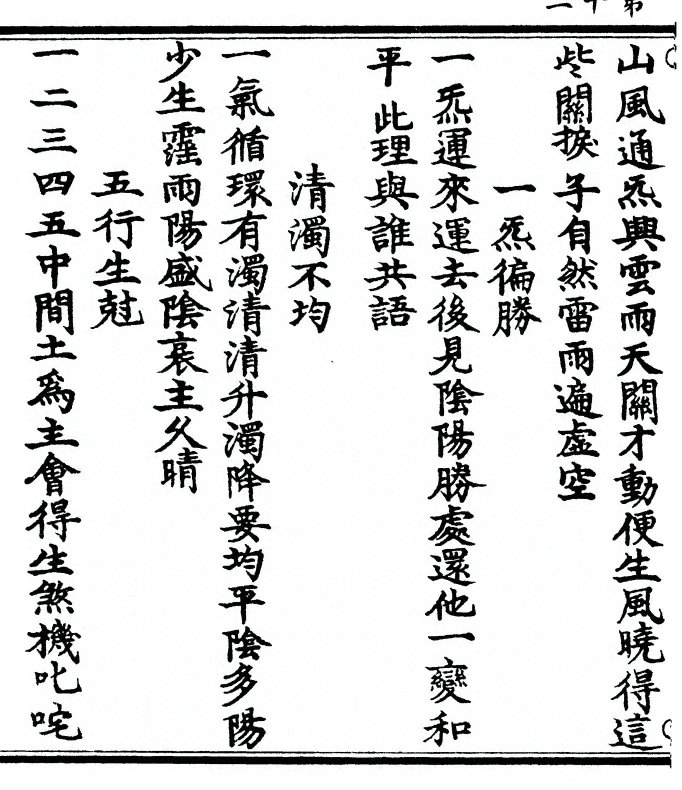 第十二
山風通炁興雲雨天關才動便生風曉得這
些關捩子自然雷雨遍虛空
一炁徧勝
一炁運來運去後見陰陽勝處還他一變和
平此理與誰共語
清濁不均
一氣循環有濁清清升濁降要均平陰多陽
少生霪雨陽盛陰衰主久晴
五行生尅
一二三四五中間土為主會得生煞機叱咤